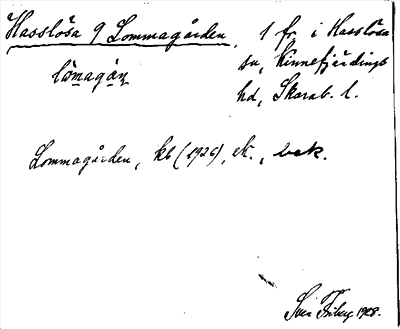 Hasslösa 9 Lommagården, 1 fr. i Hasslösa
lo̤magån sn, Kinnefjärdings
hd, Skarab. l.
Lommagården, kb (1926), ek., bek.
Sven Friberg 1928.